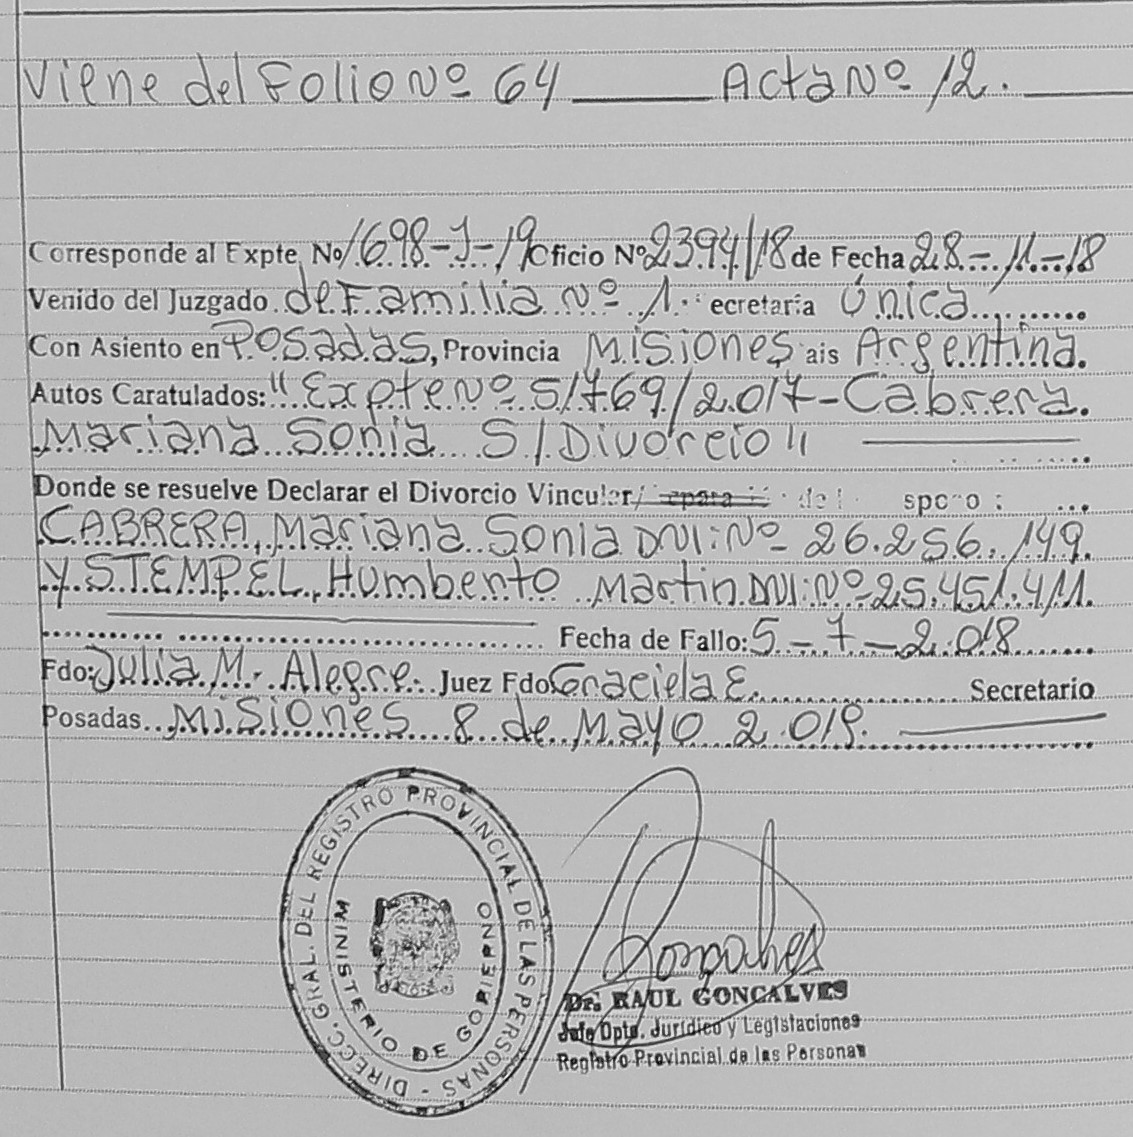 Viene del Folio Nº 64 Acta Nº 12.
Corresponde al Expte. Nº 1698-J-19 Oficio Nº 2394/18 de Fecha 28-11-18
Venido del Juzgado de Familia Nº 1. ecretaría Única
Con Asiento en Posadas, Provincia Misiones ais Argentina.
Autos Caratulados: "Expte Nº 51769/2017-Cabrera
Mariana Sonia S/Divorcio"
Donde se resuelve Declarar el Divorcio Vincular/
CABRERA, Mariana Sonia DNI: Nº 26.256.149
Y STEMPEL, Humberto Martin DNI: Nº 25.451.411.
Fecha de Fallo: 5-7-2.018
Fdo: Julia M. Alegre. Juez Fdo Graciela E. Secretario
Posadas Misiones 8 de Mayo 2.019.
DIRECC. GRAL. DEL REGISTRO PROVINCIAL DE LAS PERSONAS -
MINISTERIO DE GOBIERNO
Dr. RAUL GONCALVES
Jefe Dpto. Jurídico y Legistaciones
Registro Provincial de las Personas